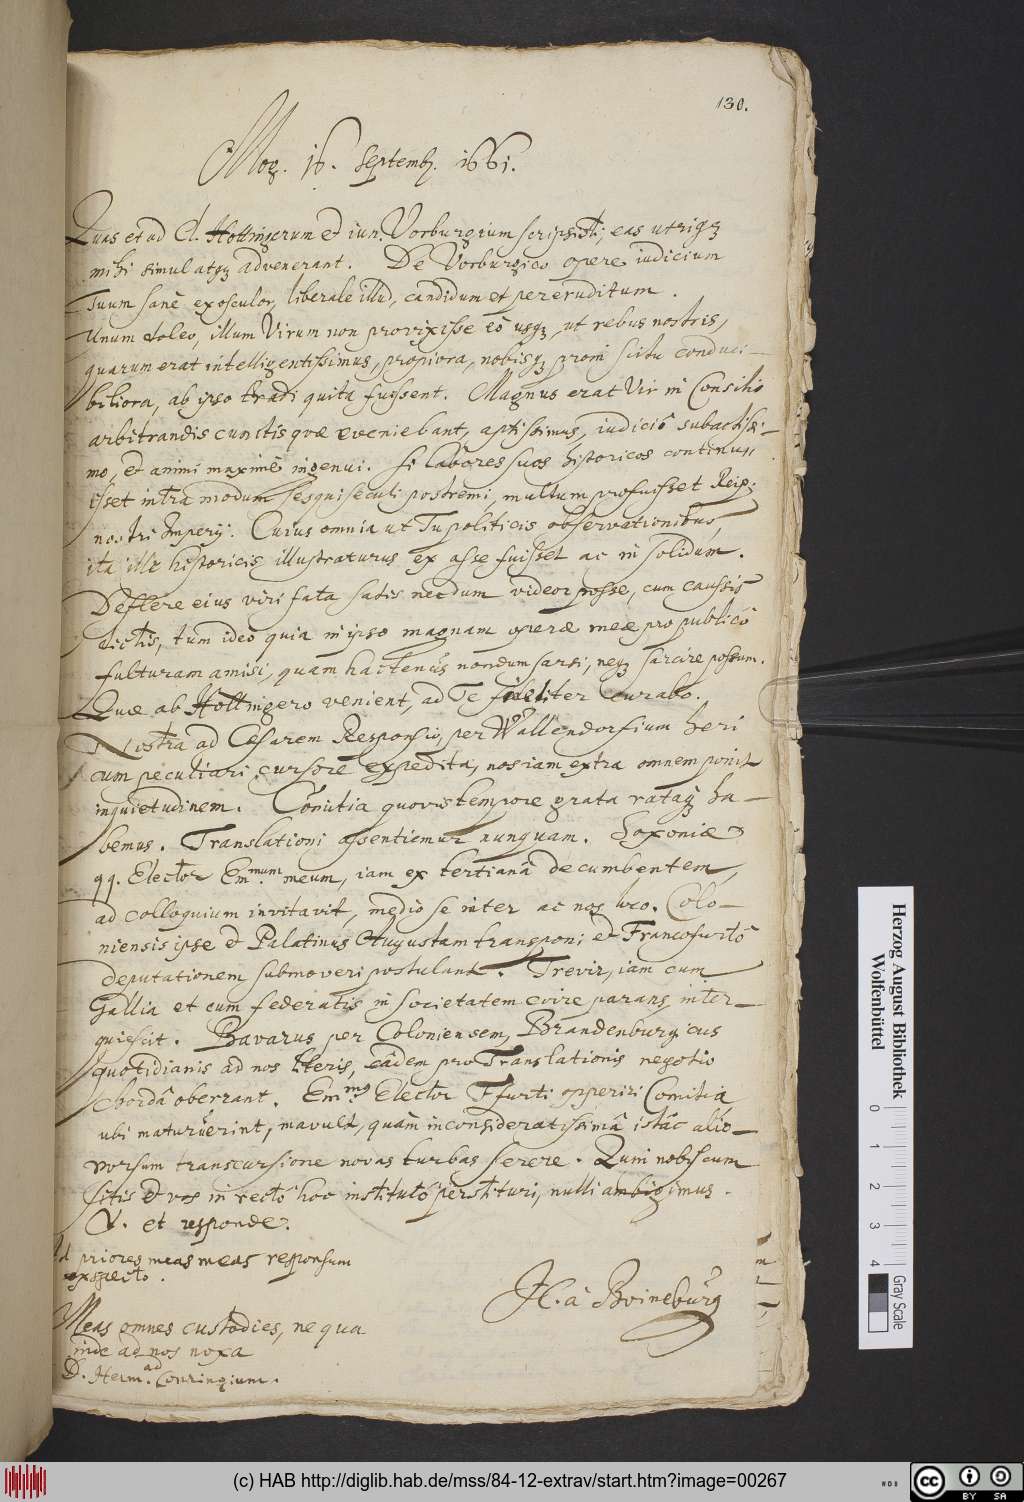 130.
Mog. 16. Septemb. 1661.
Quas et ad Cl. Hottingerum et iun. Vorburgium scripsisti, eas utrigq
mihi simul atqq advenerant. De Vorburgico opere iudicium
Tuum sanè exosculor, liberale illud, candidum et pereruditum.
Unum doleo, illum Virum non provixisse eò usqq, ut rebus nostris,
quarum erat intelligentissimus, propiora, nobisqq proin scitu conduci-
biliora, ab ipso tradi quita fuissent. Magnus erat Vir in Consilio
arbitrandis cunctis quæ eveniebant, aptissimus, iudiciô subactissi-
mo, et animi maximè ingenui. Si labores suos historicos continu-
isset intra modum sesquiseculi postremi, multum profuisset Reip:
nostri Imperij. Cuius omnia ut Tu politicis observationibus,
ita ille historicis illustraturus ex asse fuisset ac in solidum.
Deflere eius viri fata satis necdum videor posse, cum caussis
dictis, tum ideo quia in ipso magnam operæ meæ pro publicô
fulturam amisi, quam hactenùs nondum sarsi, neqq sarcire possum.
Quæ ab Hottingero venient, ad Te fideliter curabo.
Nostra ad Cæsarem Responsio, per Wallendorfium heri
cum peculiari cursore expedita, nos iam extra omnem ponit
inquietudinem. Comitia quovis tempore grata rataqq ha-
bemus. Translationi assentiemur nunquam. Saxoniæ
qq. Elector Em.mum meum, iam ex tertianâ decumbentem,
ad colloquium invitavit, medio se inter ac nos loco. Colo-
niensis ipse et Palatinus Augustam transponi et Francofurtô
deputationem submoveri postulant. Trevir, iam cum
Gallia et cum federatis in societatem coire parans, inter-
quiescit. Bavarus per Coloniensem, Brandenburgicus
quotidianis ad nos literis, eâdem pro Translationis negotio
chordâ oberrant. Em.mus Elector Ffurti opperiri Comitia
ubi maturuerint, mavult, quàm inconsideratissimâ istâc alio-
vorsum transcursione novas turbas serere. Quin nobiscum
sitis et vos in rectô hoc institutô perstituri, nulli ambigimus.
V. et responde.
Ad priores meas meas responsum
exspecto.
JC. à Boineburg
Meas omnes custodies, ne qua
inde ad nos noxa
ad
D. Herm. Conringium.
Herzog August Bibliothek
Wolfenbüttel
0 1 2 3 4
Gray Scale
(c) HAB http://diglib.hab.de/mss/84-12-extrav/start.htm?image=00267
cc BY SA